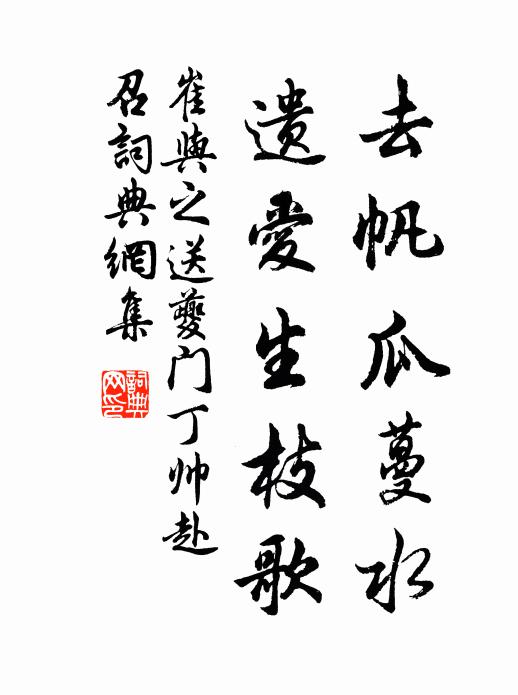 去帆瓜蔓水
遗爱生枝歌
崔與之送夔门丁帅赴
召詞典網集
詞典网印